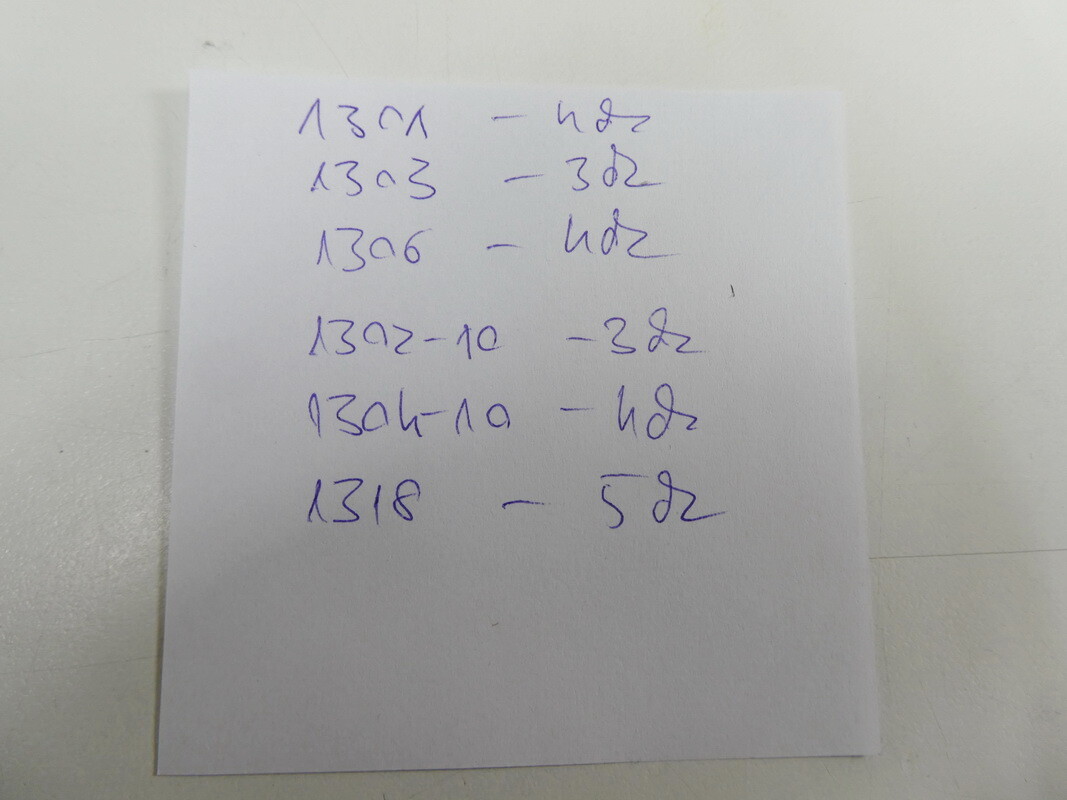 1301 - 4dz
1303 - 3dz
1306 - 4dz
1302-10 - 3dz
1304-10 - 4dz
1318 - 5dz